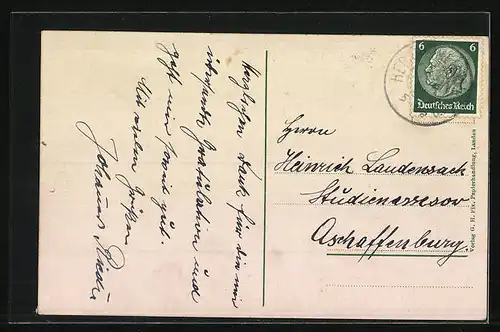 Herzlichen Dank für die mir
gesandte Gratulation und
geht mir soweit gut.
Mit vielen Grüßen
Johannes
6 6
Deutsches Reich
Herrn
Heinrich Laudensack
Studienassesor
Aschaffenburg.
Verlag G. H. Fix, Papierhandlung, Landau